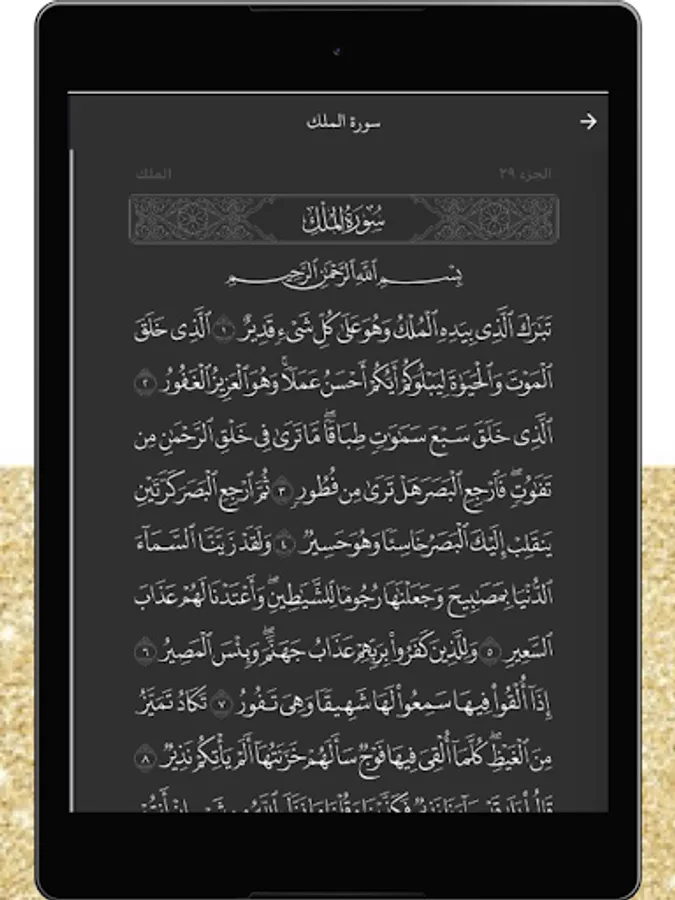 سورة الملك
الجزء ٢٩
الملك
سُورَةُ المُلْكِ
بِسْمِ ٱللَّهِ ٱلرَّحْمَٰنِ ٱلرَّحِيمِ
تَبَٰرَكَ ٱلَّذِى بِيَدِهِ ٱلْمُلْكُ وَهُوَ عَلَىٰ كُلِّ شَىْءٍ قَدِيرٌ ١ ٱلَّذِى خَلَقَ
ٱلْمَوْتَ وَٱلْحَيَوٰةَ لِيَبْلُوَكُمْ أَيُّكُمْ أَحْسَنُ عَمَلًا ۚ وَهُوَ ٱلْعَزِيزُ ٱلْغَفُورُ ٢
ٱلَّذِى خَلَقَ سَبْعَ سَمَٰوَٰتٍ طِبَاقًا ۖ مَّا تَرَىٰ فِى خَلْقِ ٱلرَّحْمَٰنِ مِن
تَفَٰوُتٍ ۖ فَٱرْجِعِ ٱلْبَصَرَ هَلْ تَرَىٰ مِن فُطُورٍ ٣ ثُمَّ ٱرْجِعِ ٱلْبَصَرَ كَرَّتَيْنِ
يَنقَلِبْ إِلَيْكَ ٱلْبَصَرُ خَاسِئًا وَهُوَ حَسِيرٌ ٤ وَلَقَدْ زَيَّنَّا ٱلسَّمَآءَ
ٱلدُّنْيَا بِمَصَٰبِيحَ وَجَعَلْنَٰهَا رُجُومًا لِّلشَّيَٰطِينِ ۖ وَأَعْتَدْنَا لَهُمْ عَذَابَ
ٱلسَّعِيرِ ٥ وَلِلَّذِينَ كَفَرُوا۟ بِرَبِّهِمْ عَذَابُ جَهَنَّمَ ۖ وَبِئْسَ ٱلْمَصِيرُ ٦
إِذَآ أُلْقُوا۟ فِيهَا سَمِعُوا۟ لَهَا شَهِيقًا وَهِىَ تَفُورُ ٧ تَكَادُ تَمَيَّزُ
مِنَ ٱلْغَيْظِ ۖ كُلَّمَآ أُلْقِىَ فِيهَا فَوْجٌ سَأَلَهُمْ خَزَنَتُهَآ أَلَمْ يَأْتِكُمْ نَذِيرٌ ٨